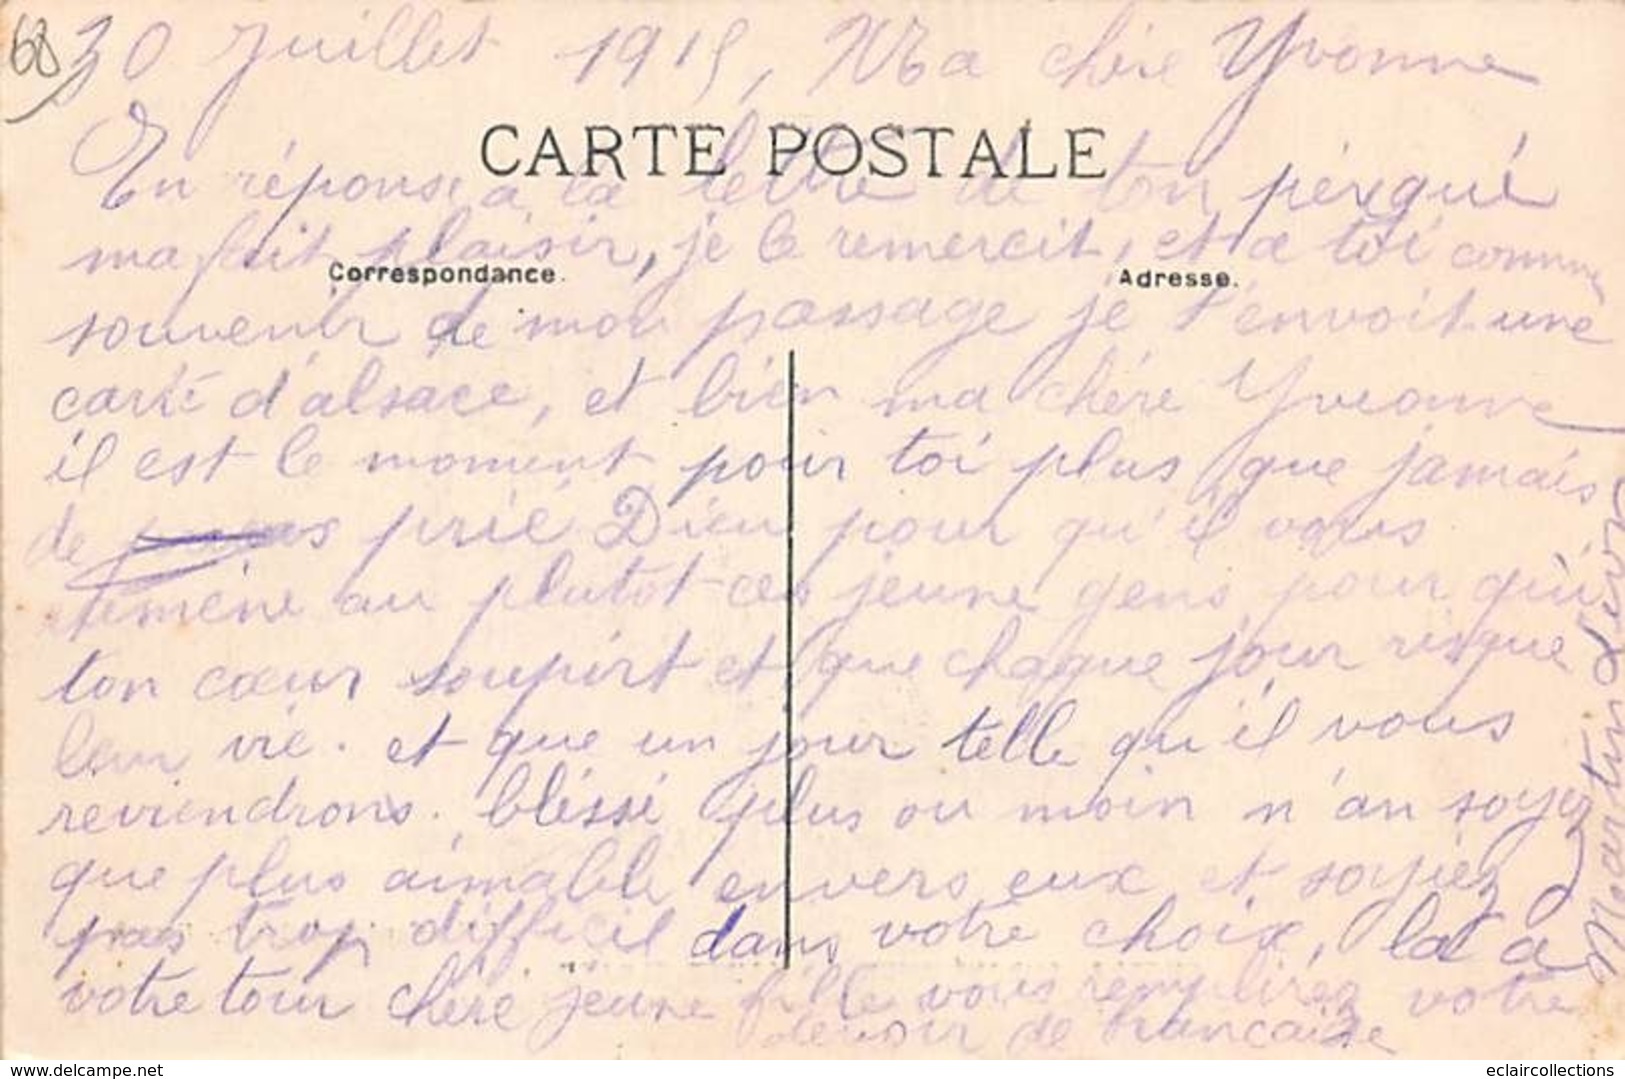 68
30 Juillet 1915, Ma chère Yvonne
CARTE POSTALE
En réponse a la lettre de ton père qui
ma fait plaisir, je le remercit, et a toi comme
Correspondance.
Adresse.
souvenir de mon passage je t'envoit une
carte d'alsace, et bien ma chère Yvonne
il est le moment pour toi plus que jamais
de prié Dieu pour qu'il vous
remène au plutot ces jeune gens pour qui
ton cœur soupirt et que chaque jour risque
leur vie. et que un jour telle qu'il vous
reviendrons. bléssé plus ou moin n'an soyez
que plus aimable envers eux et soyiez
pas trop difficil dans votre choix, la a
votre tour chère jeune fille vous remplirez votre
devoir de francaise
Martin
eclaircollections
delcampe.net